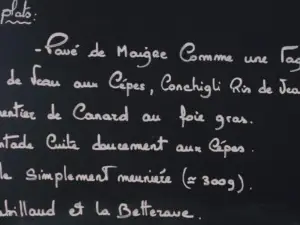 plats:
- Pavé de Maigre Comme une
de Veau aux Cèpes, Conchigli Ris de Vea
entier de Canard au foie gras.
ntade Cuite doucement aux Cèpes.
le Simplement meunière (≈ 300g).
abillaud et la Betterave.